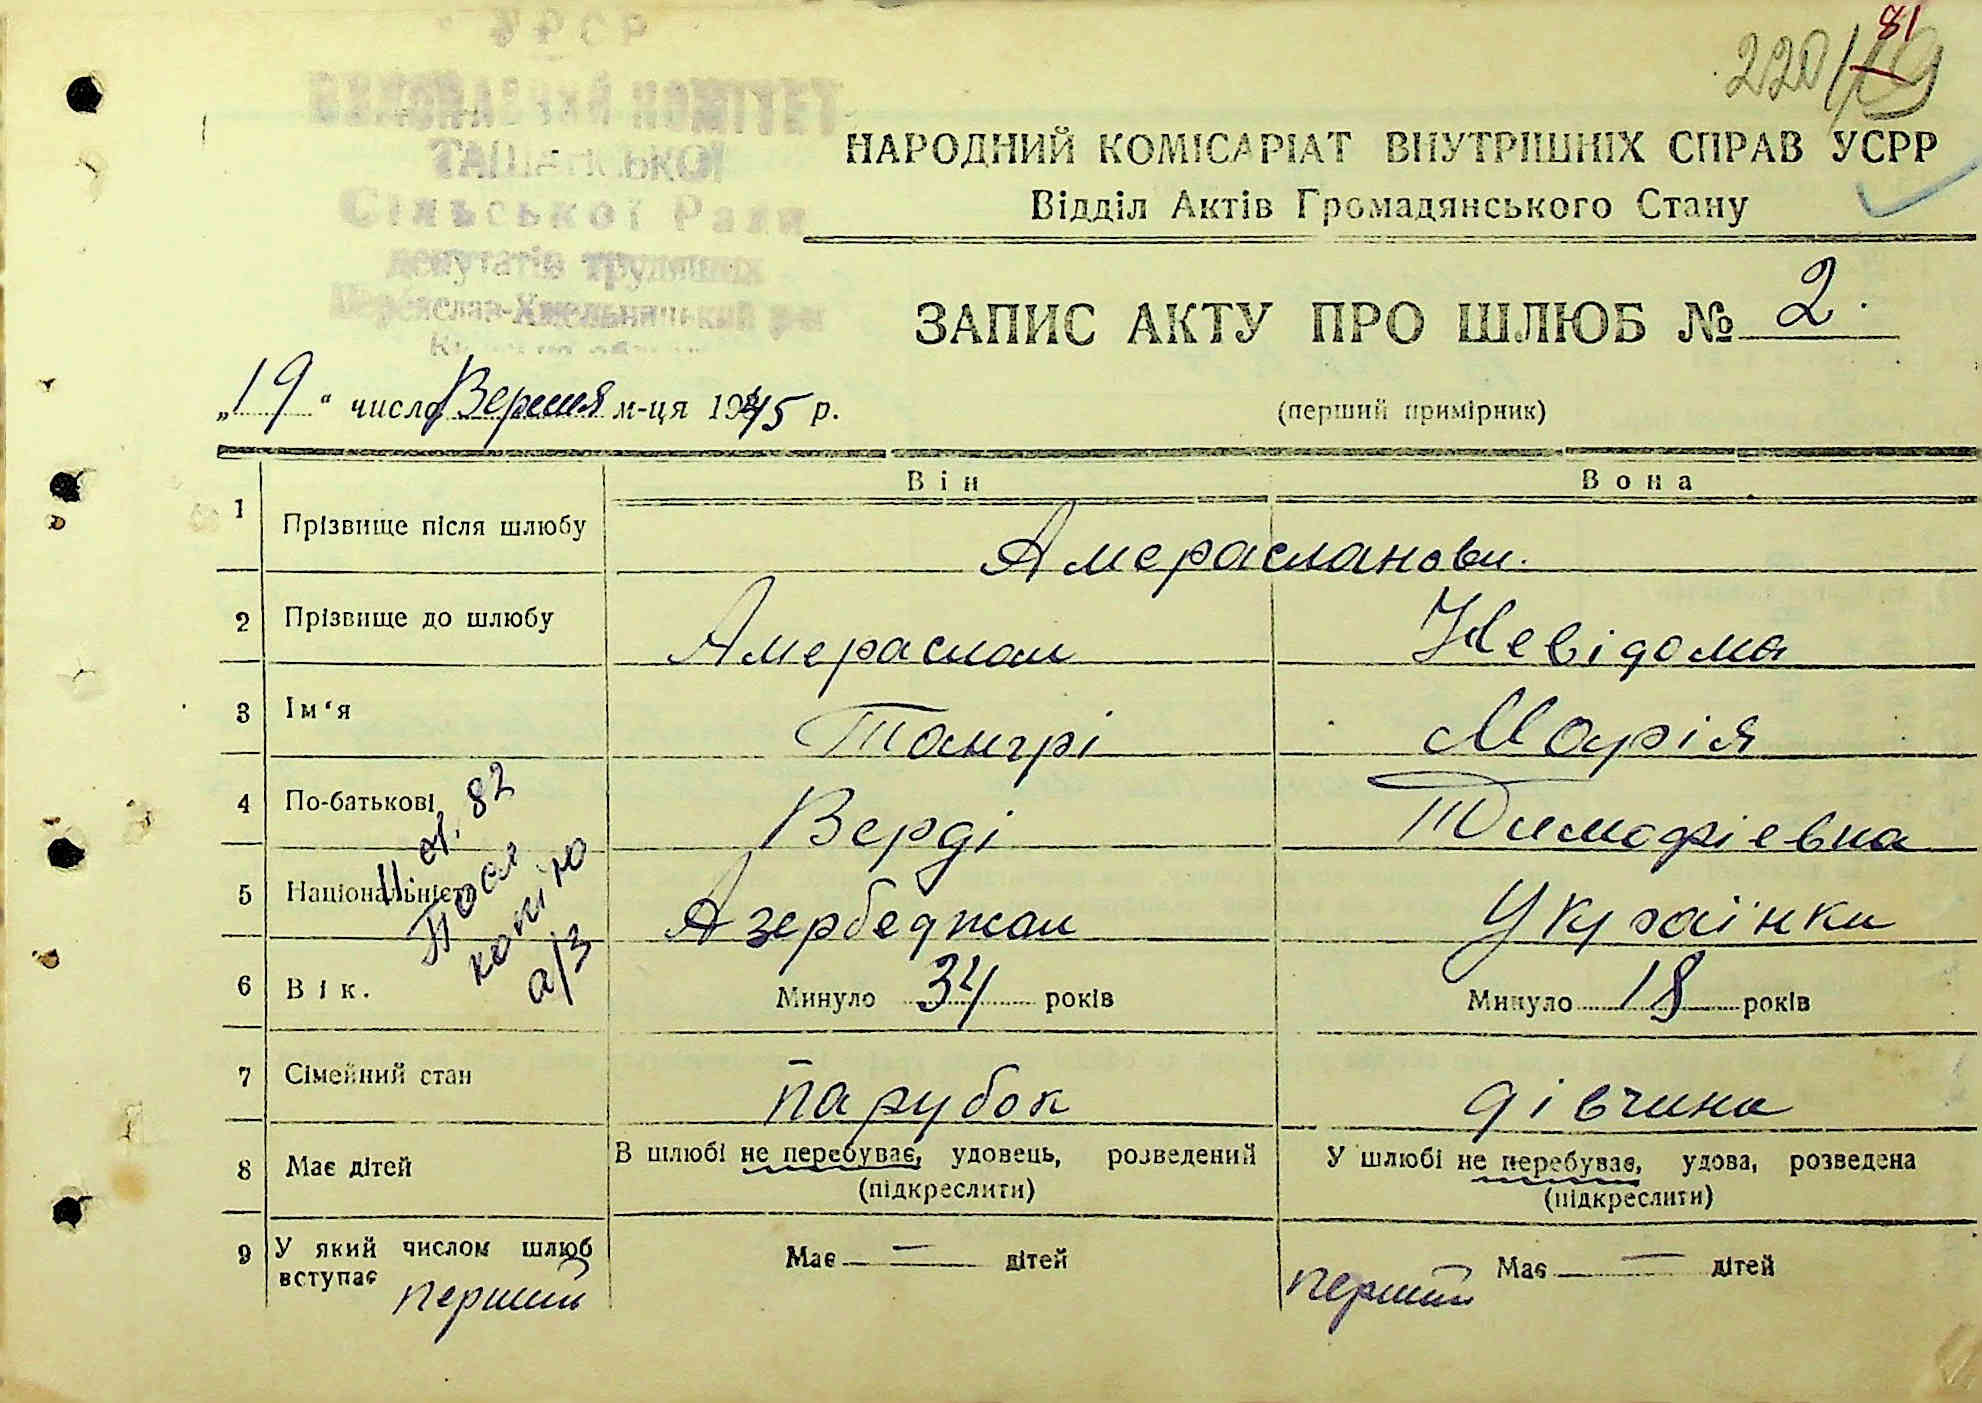 81
220/19
УРСР
ВИКОНАВЧИЙ КОМІТЕТ
ТАШАНСЬКОЇ
Сільської Ради
депутатів трудящих
Переяслав-Хмельницький р-н
НАРОДНИЙ КОМІСАРІАТ ВНУТРІШНІХ СПРАВ УСРР
Відділ Актів Громадянського Стану
ЗАПИС АКТУ ПРО ШЛЮБ № 2.
„19“ число Вересня м-ця 1945 р. (перший примірник)
Він Вона
1 Прізвище після шлюбу Амерасланови.
2 Прізвище до шлюбу Амераслан Невідома
3 Ім‘я Тангрі Марія
4 По-батькові Верді Тимофіевна
5 Національність Азербеджан Українки
6 Вік. Минуло 34 років Минуло 18 років
7 Сімейний стан парубок дівчина
8 Має дітей В шлюбі не перебуває, удовець, розведений У шлюбі не перебуває, удова, розведена
(підкреслити) (підкреслити)
9 У який числом шлюб вступає перший Має — дітей перший Має — дітей
82
копію
а/з